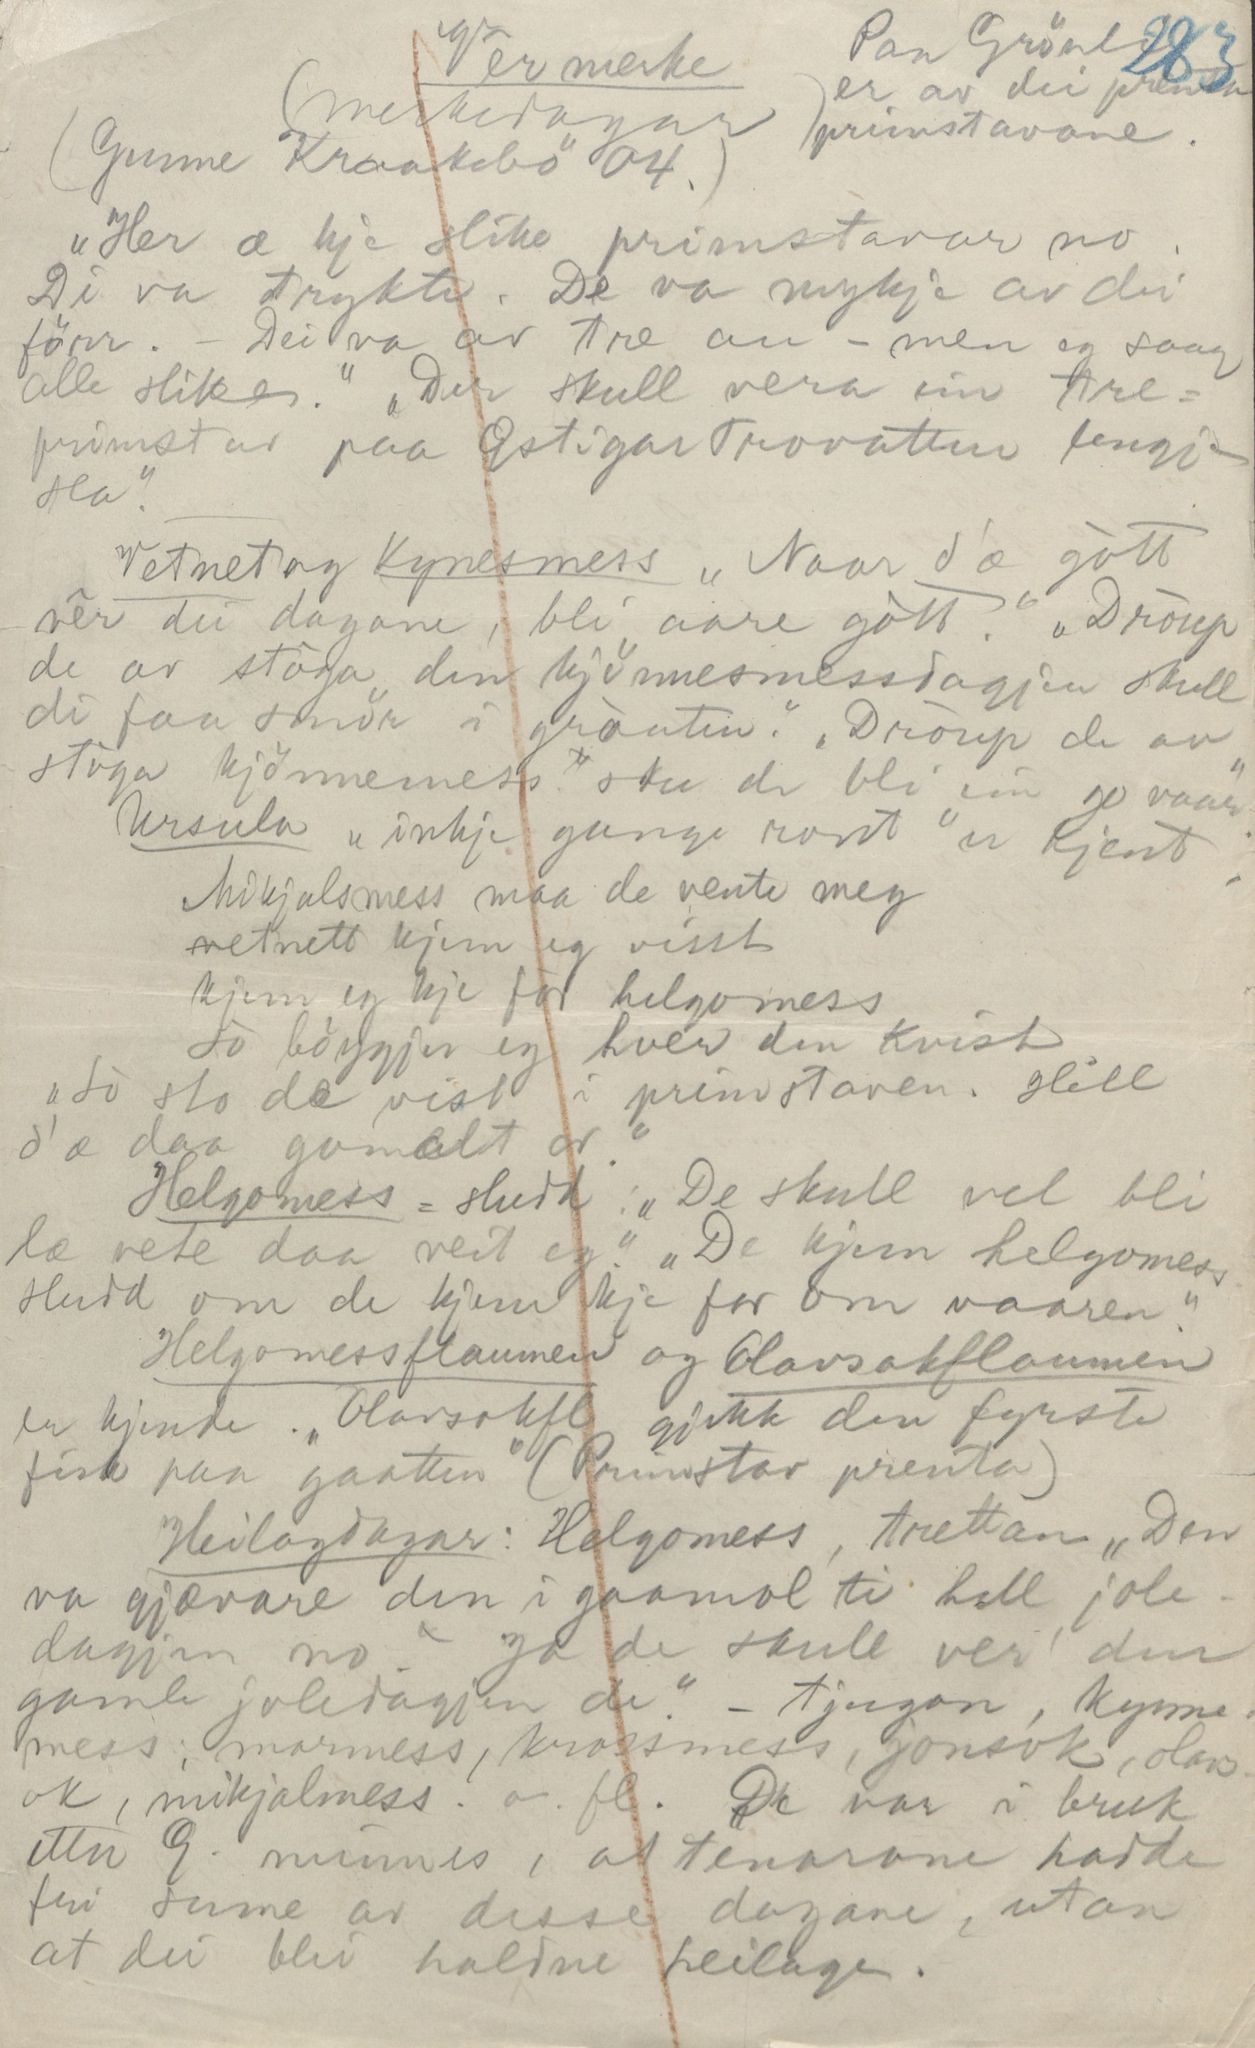 Vêrmerke
(merkedagar)
Paa Grönli
er av dei prenta
primstavane.
283
(Gunne Kraakebö 04.)
"Her æ kje slike primstavar no.
Di va trykte. De va mykje av dei
förr. – Dei va av tre au – men eg saag
alle slike." "Der skull vera ein tre=
primstav paa Östigar Trovatten lengje
sea".
Vetnet og Kynesmess "Naar d'æ gòtt
vêr dei dagane, bli aare gòtt." "Dròup
de av stòga den kjönnesmessdagjen skull
di faa smör i gròuten." "Dròup de av
stòga kjönnemess" sku de bli ein go vaar".
Ursula "inkje gange ront" er kjent.
Mikjalsmess maa de vente meg
vetnett kjem eg visst
kjem eg kje för helgomess
So böygjer eg hver den kvist
"So sto de vist i primstaven. Heill
d'æ daa gomalt or."
Helgomess = sludd: "De skull vel bli
læ vete daa veit eg." "De kjem helgomess
sludd om de kjem kje för om vaaren".
Helgomessflaumen og Olavsokflaumen
er kjende. "Olavsokfl gjekk den fyrste
fisk paa gaatten" (Primstav prenta)
Heilagdagar: Helgomess, trettan "Den
va gjævare den i gaamol ti hell jole-
dagjen no." Ja de skull ver' den
gamle joledagjen de." – Tjugon, kynne-
mess, marmess, krossmess, jonsok, olav-
ok, mikjalmess. o. fl. De var i bruk
etter G. minnes, at tenarane hadde
fri sume av desse dagane, utan
at dei blei haldne heilage.